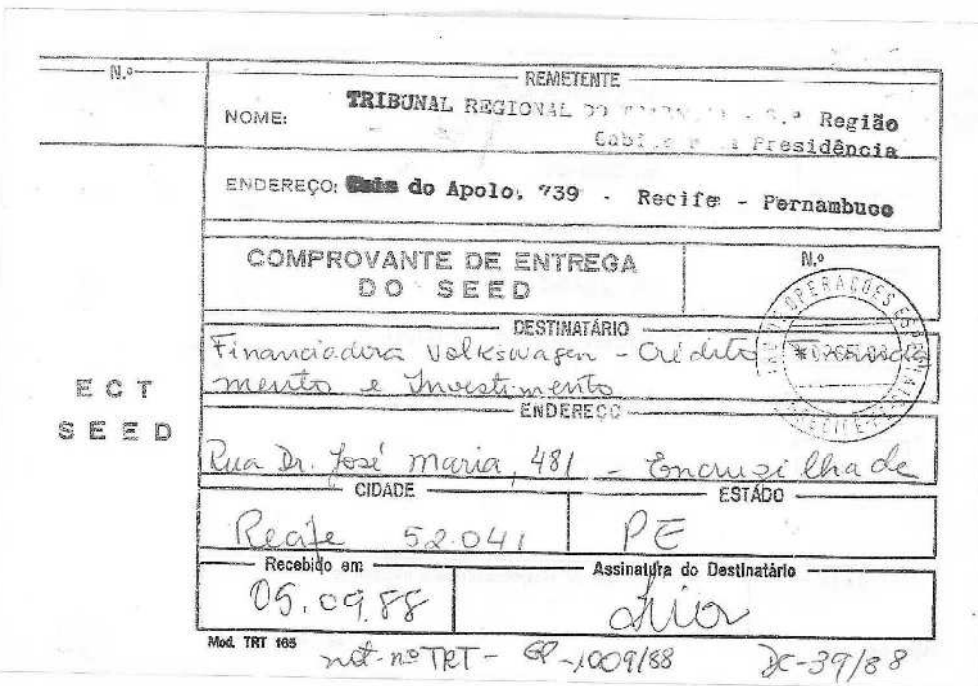 N.º
REMETENTE
NOME: TRIBUNAL REGIONAL DO - 6.ª Região
Presidência
ENDEREÇO: Cais do Apolo, 739 - Recife - Pernambuco
COMPROVANTE DE ENTREGA
DO SEED
N.º
OPERAÇÕES
RECIFE
DESTINATÁRIO
Financiadora Volkswagen - Crédito
mento e Investimento
ECT
SEED
ENDEREÇO
Rua Dr. José Maria, 481 - Encruzilhada
CIDADE
ESTADO
Recife 52.041
PE
Recebido em
Assinatura do Destinatário
05.09.88
Mod. TRT 165
not-nº TRT - GP-1009/88 DC-39/88